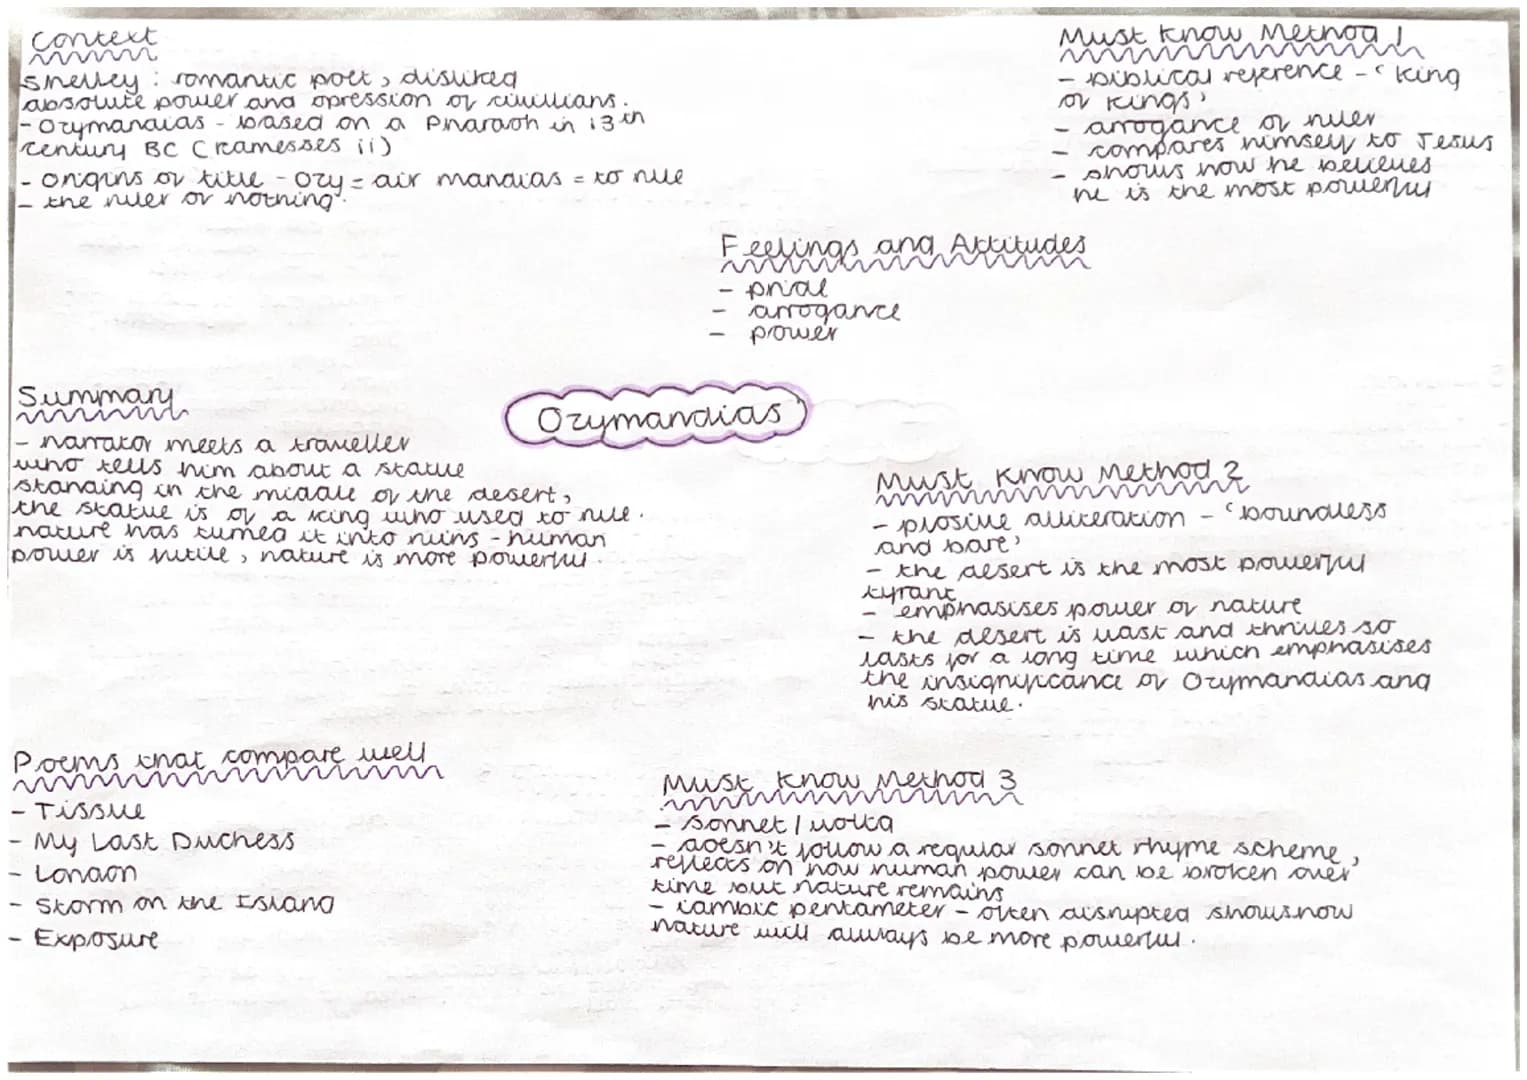 Context
Shelley : romantic poet, disliked
absolute power and opression of civillians.
- Ozymandias - based on a Pharaoh in 13th
century BC (ramesses ii)
- origins of title - ozy = air mandias = to rule
- the ruler of nothing'.
Must Know Method 1
- biblical reference - 'king
of kings'
- arrogance of ruler
- compares himself to Jesus
- shows how he believes
he is the most powerful
Feelings and Attitudes
- pride
- arrogance
- power
Summary
- narrator meets a traveller
who tells him about a statue
standing in the middle of the desert,
the statue is of a king who used to rule.
nature has turned it into ruins - human
power is futile, nature is more powerful.
Ozymandias
Must Know Method 2
- plosive alliteration - 'boundless
and bare'
- the desert is the most powerful
tyrant
- emphasises power of nature
- the desert is vast and thrives so
lasts for a long time which emphasises
the insignificance of Ozymandias and
his statue.
Poems that compare well
- Tissue
- My Last Duchess
- London
- Storm on the Island
- Exposure
Must Know Method 3
- sonnet / volta
- doesn't follow a regular sonnet rhyme scheme,
reflects on how human power can be broken over
time but nature remains
- iambic pentameter - often disrupted shows how
nature will always be more powerful.